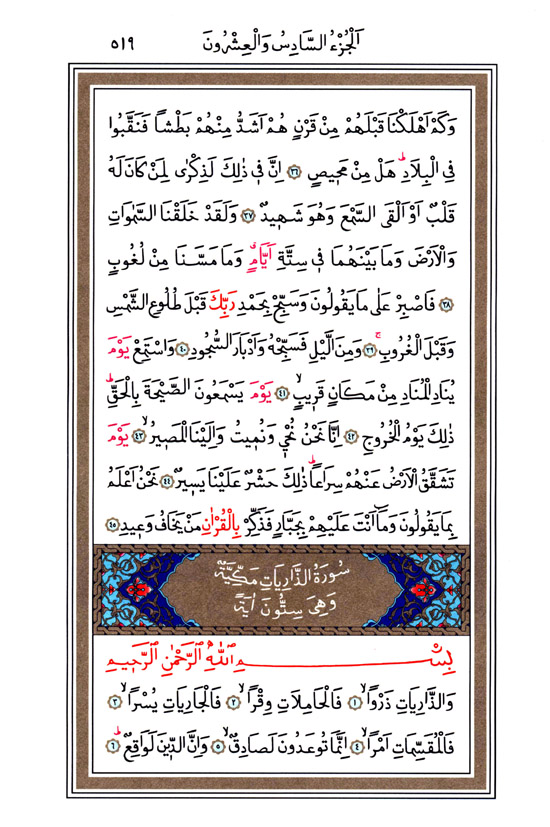 اَلْجُزْءُ السَّادِسُ وَالْعِشْرُونَ ٥١٩
وَكَمْ اَهْلَكْنَا قَبْلَهُمْ مِنْ قَرْنٍ هُمْ اَشَدُّ مِنْهُمْ بَطْشاً فَنَقَّبُوا
فِي الْبِلَادِۜ هَلْ مِنْ مَحٖيصٍ ﴿٣٦﴾ اِنَّ فٖي ذٰلِكَ لَذِكْرٰى لِمَنْ كَانَ لَهُ
قَلْبٌ اَوْ اَلْقَى السَّمْعَ وَهُوَ شَهٖيدٌ ﴿٣٧﴾ وَلَقَدْ خَلَقْنَا السَّمٰوَاتِ
وَالْاَرْضَ وَمَا بَيْنَهُمَا فٖي سِتَّةِ اَيَّامٍۗ وَمَا مَسَّنَا مِنْ لُغُوبٍ
﴿٣٨﴾ فَاصْبِرْ عَلٰى مَا يَقُولُونَ وَسَبِّحْ بِحَمْدِ رَبِّكَ قَبْلَ طُلُوعِ الشَّمْسِ
وَقَبْلَ الْغُرُوبِۚ ﴿٣٩﴾ وَمِنَ الَّيْلِ فَسَبِّحْهُ وَاَدْبَارَ السُّجُودِ ﴿٤٠﴾ وَاسْتَمِعْ يَوْمَ
يُنَادِ الْمُنَادِ مِنْ مَكَانٍ قَرٖيبٍۙ ﴿٤١﴾ يَوْمَ يَسْمَعُونَ الصَّيْحَةَ بِالْحَقِّۜ
ذٰلِكَ يَوْمُ الْخُرُوجِ ﴿٤٢﴾ اِنَّا نَحْنُ نُحْيٖ وَنُمٖيتُ وَاِلَيْنَا الْمَصٖيرُۙ ﴿٤٣﴾ يَوْمَ
تَشَقَّقُ الْاَرْضُ عَنْهُمْ سِرَاعاًۜ ذٰلِكَ حَشْرٌ عَلَيْنَا يَسٖيرٌ ﴿٤٤﴾ نَحْنُ اَعْلَمُ
بِمَا يَقُولُونَ وَمَٓا اَنْتَ عَلَيْهِمْ بِجَبَّارٍ فَذَكِّرْ بِالْقُرْاٰنِ مَنْ يَخَافُ وَعٖيدِ ﴿٤٥﴾
سُورَةُ الذَّارِيَاتِ مَكِّيَّةٌ
وَهِيَ سِتُّونَ اٰيَةً
بِسْمِ اللّٰهِ الرَّحْمٰنِ الرَّحٖيمِ
وَالذَّارِيَاتِ ذَرْواًۙ ﴿١﴾ فَالْحَامِلَاتِ وِقْراًۙ ﴿٢﴾ فَالْجَارِيَاتِ يُسْراًۙ ﴿٣﴾
فَالْمُقَسِّمَاتِ اَمْراًۙ ﴿٤﴾ اِنَّمَا تُوعَدُونَ لَصَادِقٌۙ ﴿٥﴾ وَاِنَّ الدّٖينَ لَوَاقِعٌۜ ﴿٦﴾